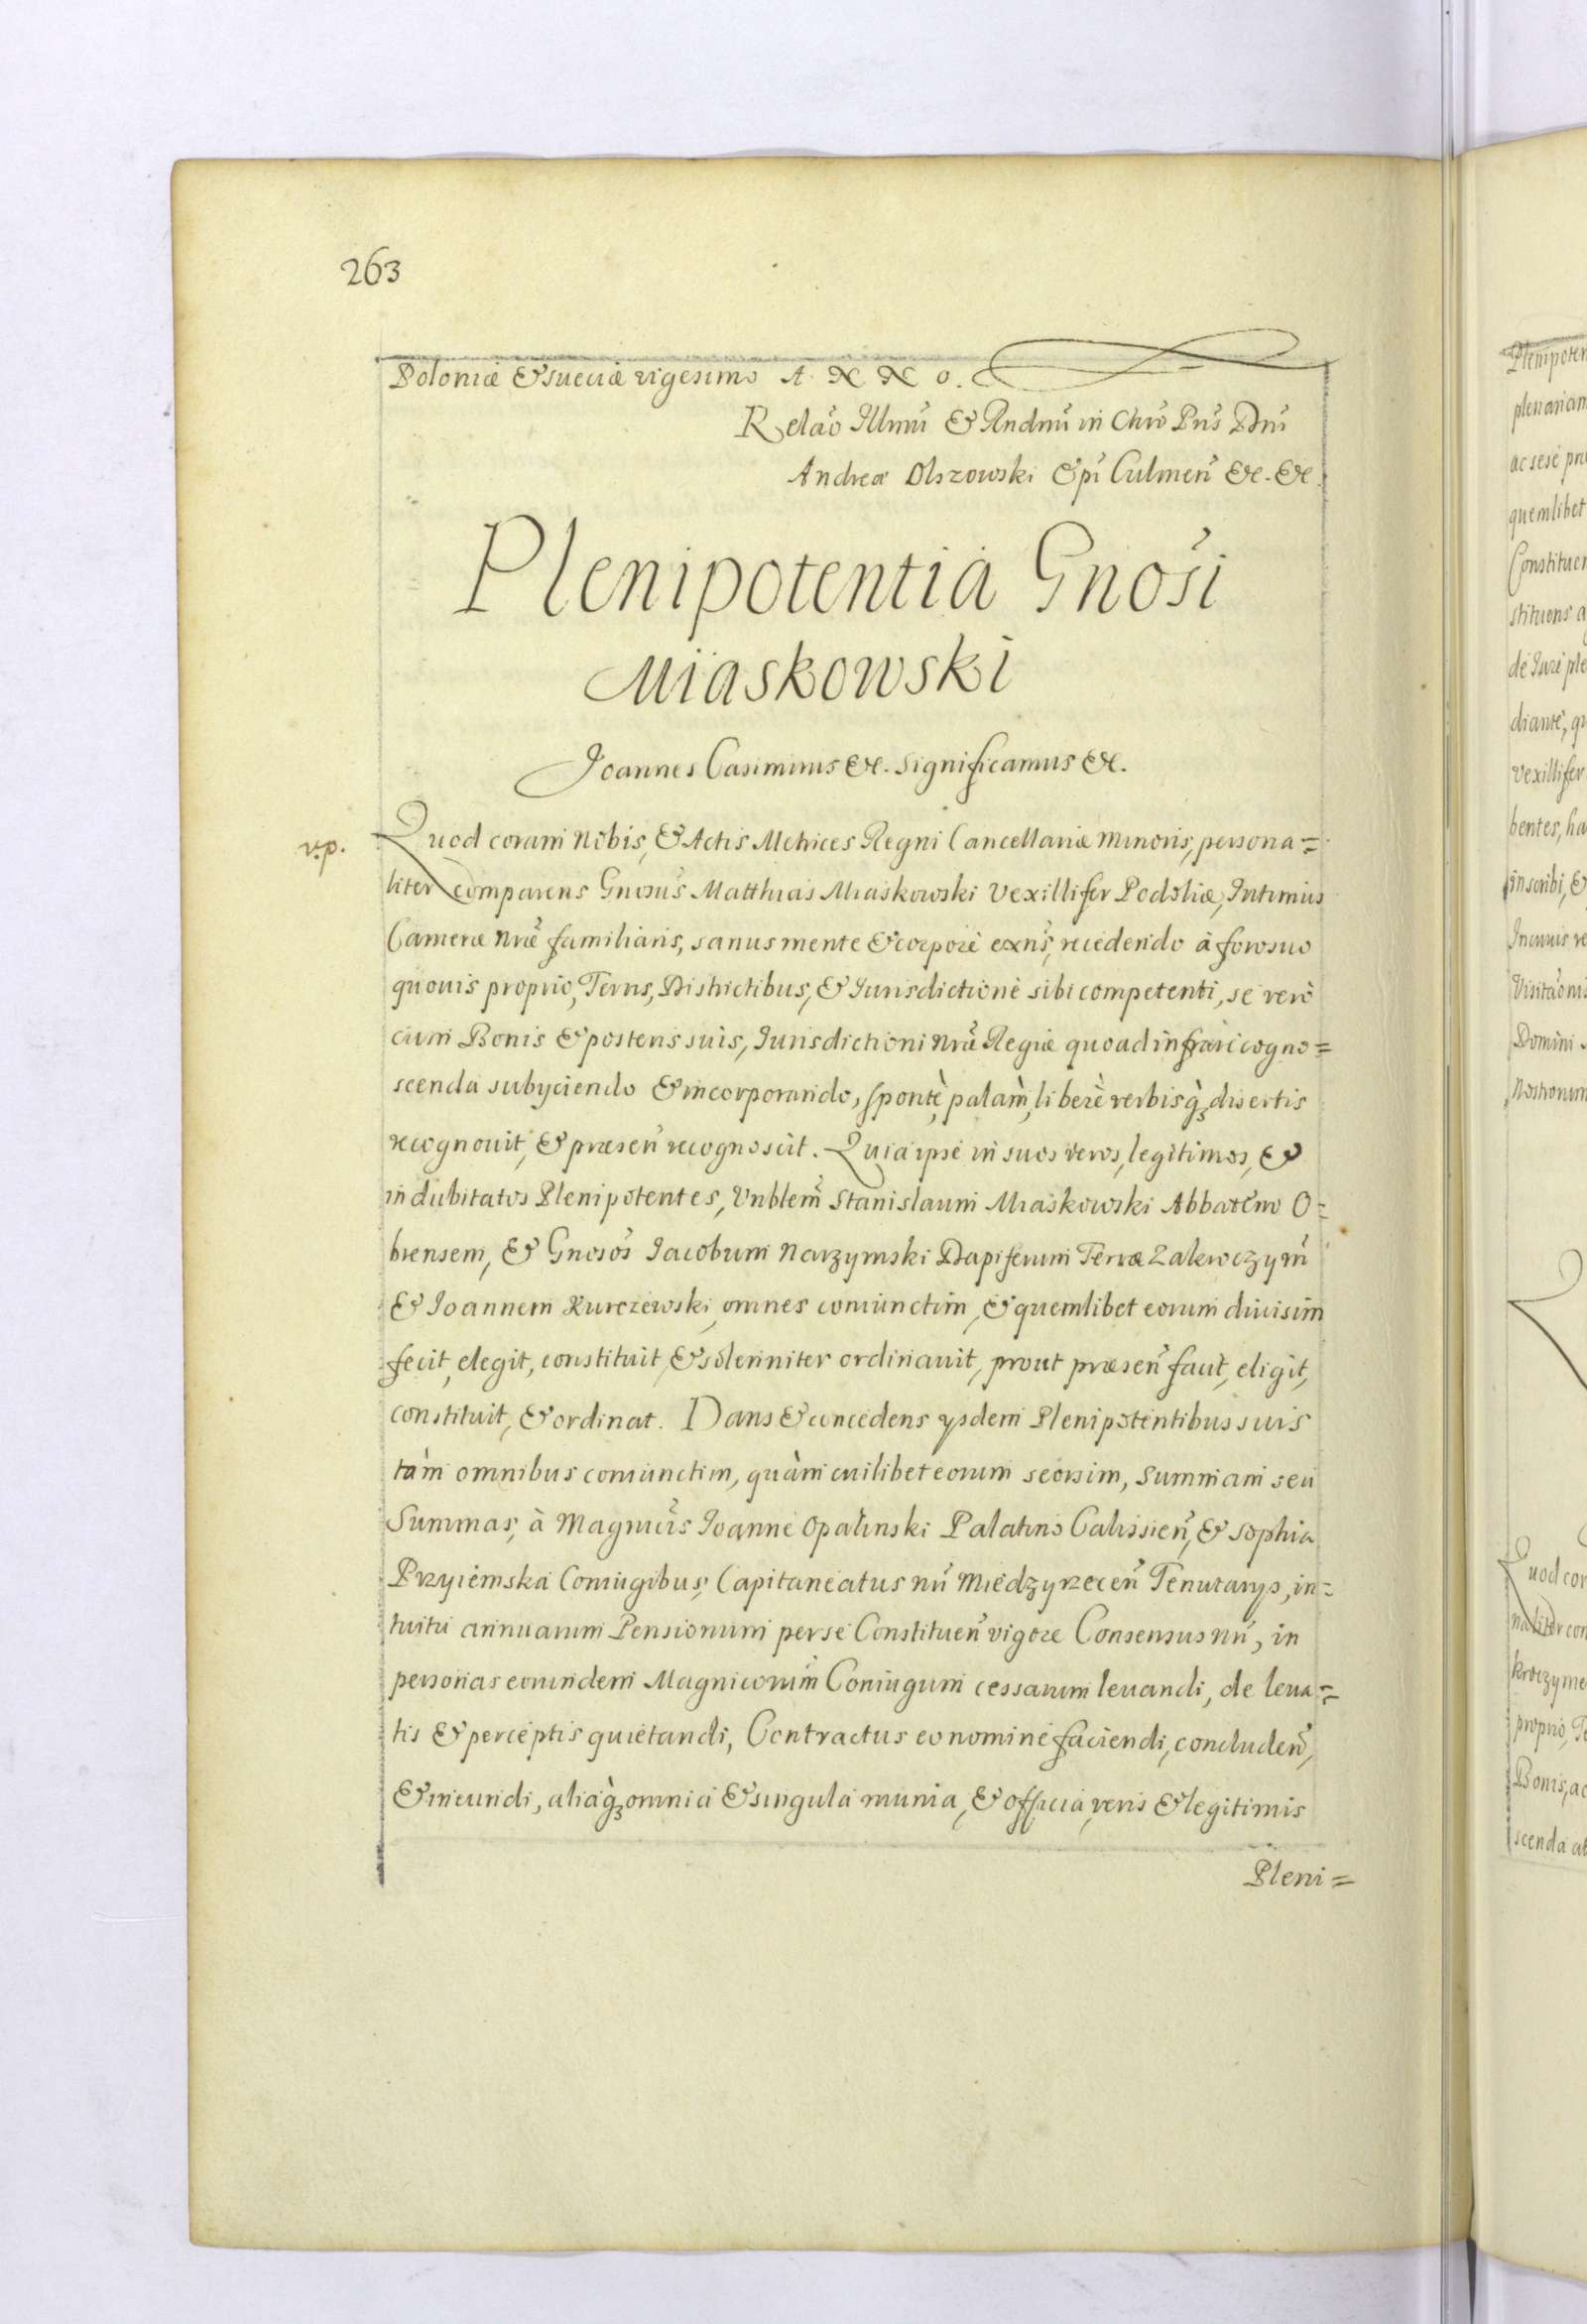 263
Poloniæ & sueciæ vigesimo A N N o.
Relão Illmi & Rndmi in Chro Pris Dni
Andreæ Olszowski Epi Culmeñ &c. &c.
Plenipotentia Gnosi
Miaskowski
Joannes Casimirus &c. significamus &c.
v.p.
Quod coram Nobis, & Actis Metrices Regni Cancellariæ Minoris, persona=
liter comparens Gnosus Matthias Miaskowski Vexillifer Podoliæ, Intimus
Cameræ nræ familiaris, sanus mente & corpore exns, recedendo à foro suo
quouis proprio, Terris, Districtibus, & Iurisdictione sibi competenti, se verò
cum Bonis & posteris suis, Iurisdictioni nræ Regiæ quoad infrari cogno=
scenda subijciendo & incorporando, spontè, palàm, liberè verbisq; disertis
recognouit, & præseñ recognoscit. Quia ipse in suos veros, legitimos, &
indubitatos Plenipotentes, Vnblem Stanislaum Miaskowski Abbatem O=
brensem, & Gnosos Iacobum Narzymski Dapiferum Terræ Zakroczym
& Ioannem Kurczewski, omnes coniunctim, & quemlibet eorum diuisim
fecit, elegit, constituit, & solenniter ordinauit, prout præseñ facit, eligit,
constituit, & ordinat. Dans & concedens ijsdem Plenipotentibus suis
tàm omnibus coniunctim, quàm cuilibet eorum seorsim, Summam seu
Summas, à Magnicis Ioanne Opalinski Palatino Calissieñ, & Sophia
Przyiemska Coniugibus, Capitaneatus nri Miedzyrzeceñ Tenutarijs, in=
tuitu annuarum Pensionum per se Constitueñ vigore Consensus nri, in
personas eorundem Magnicorum Coniugum cessarum leuandi, de leua=
tis & perceptis quietandi, Contractus eo nomine faciendi, concludeñ,
& ineundi, aliaq; omnia & singula munia, & officia, veris & legitimis
Pleni=